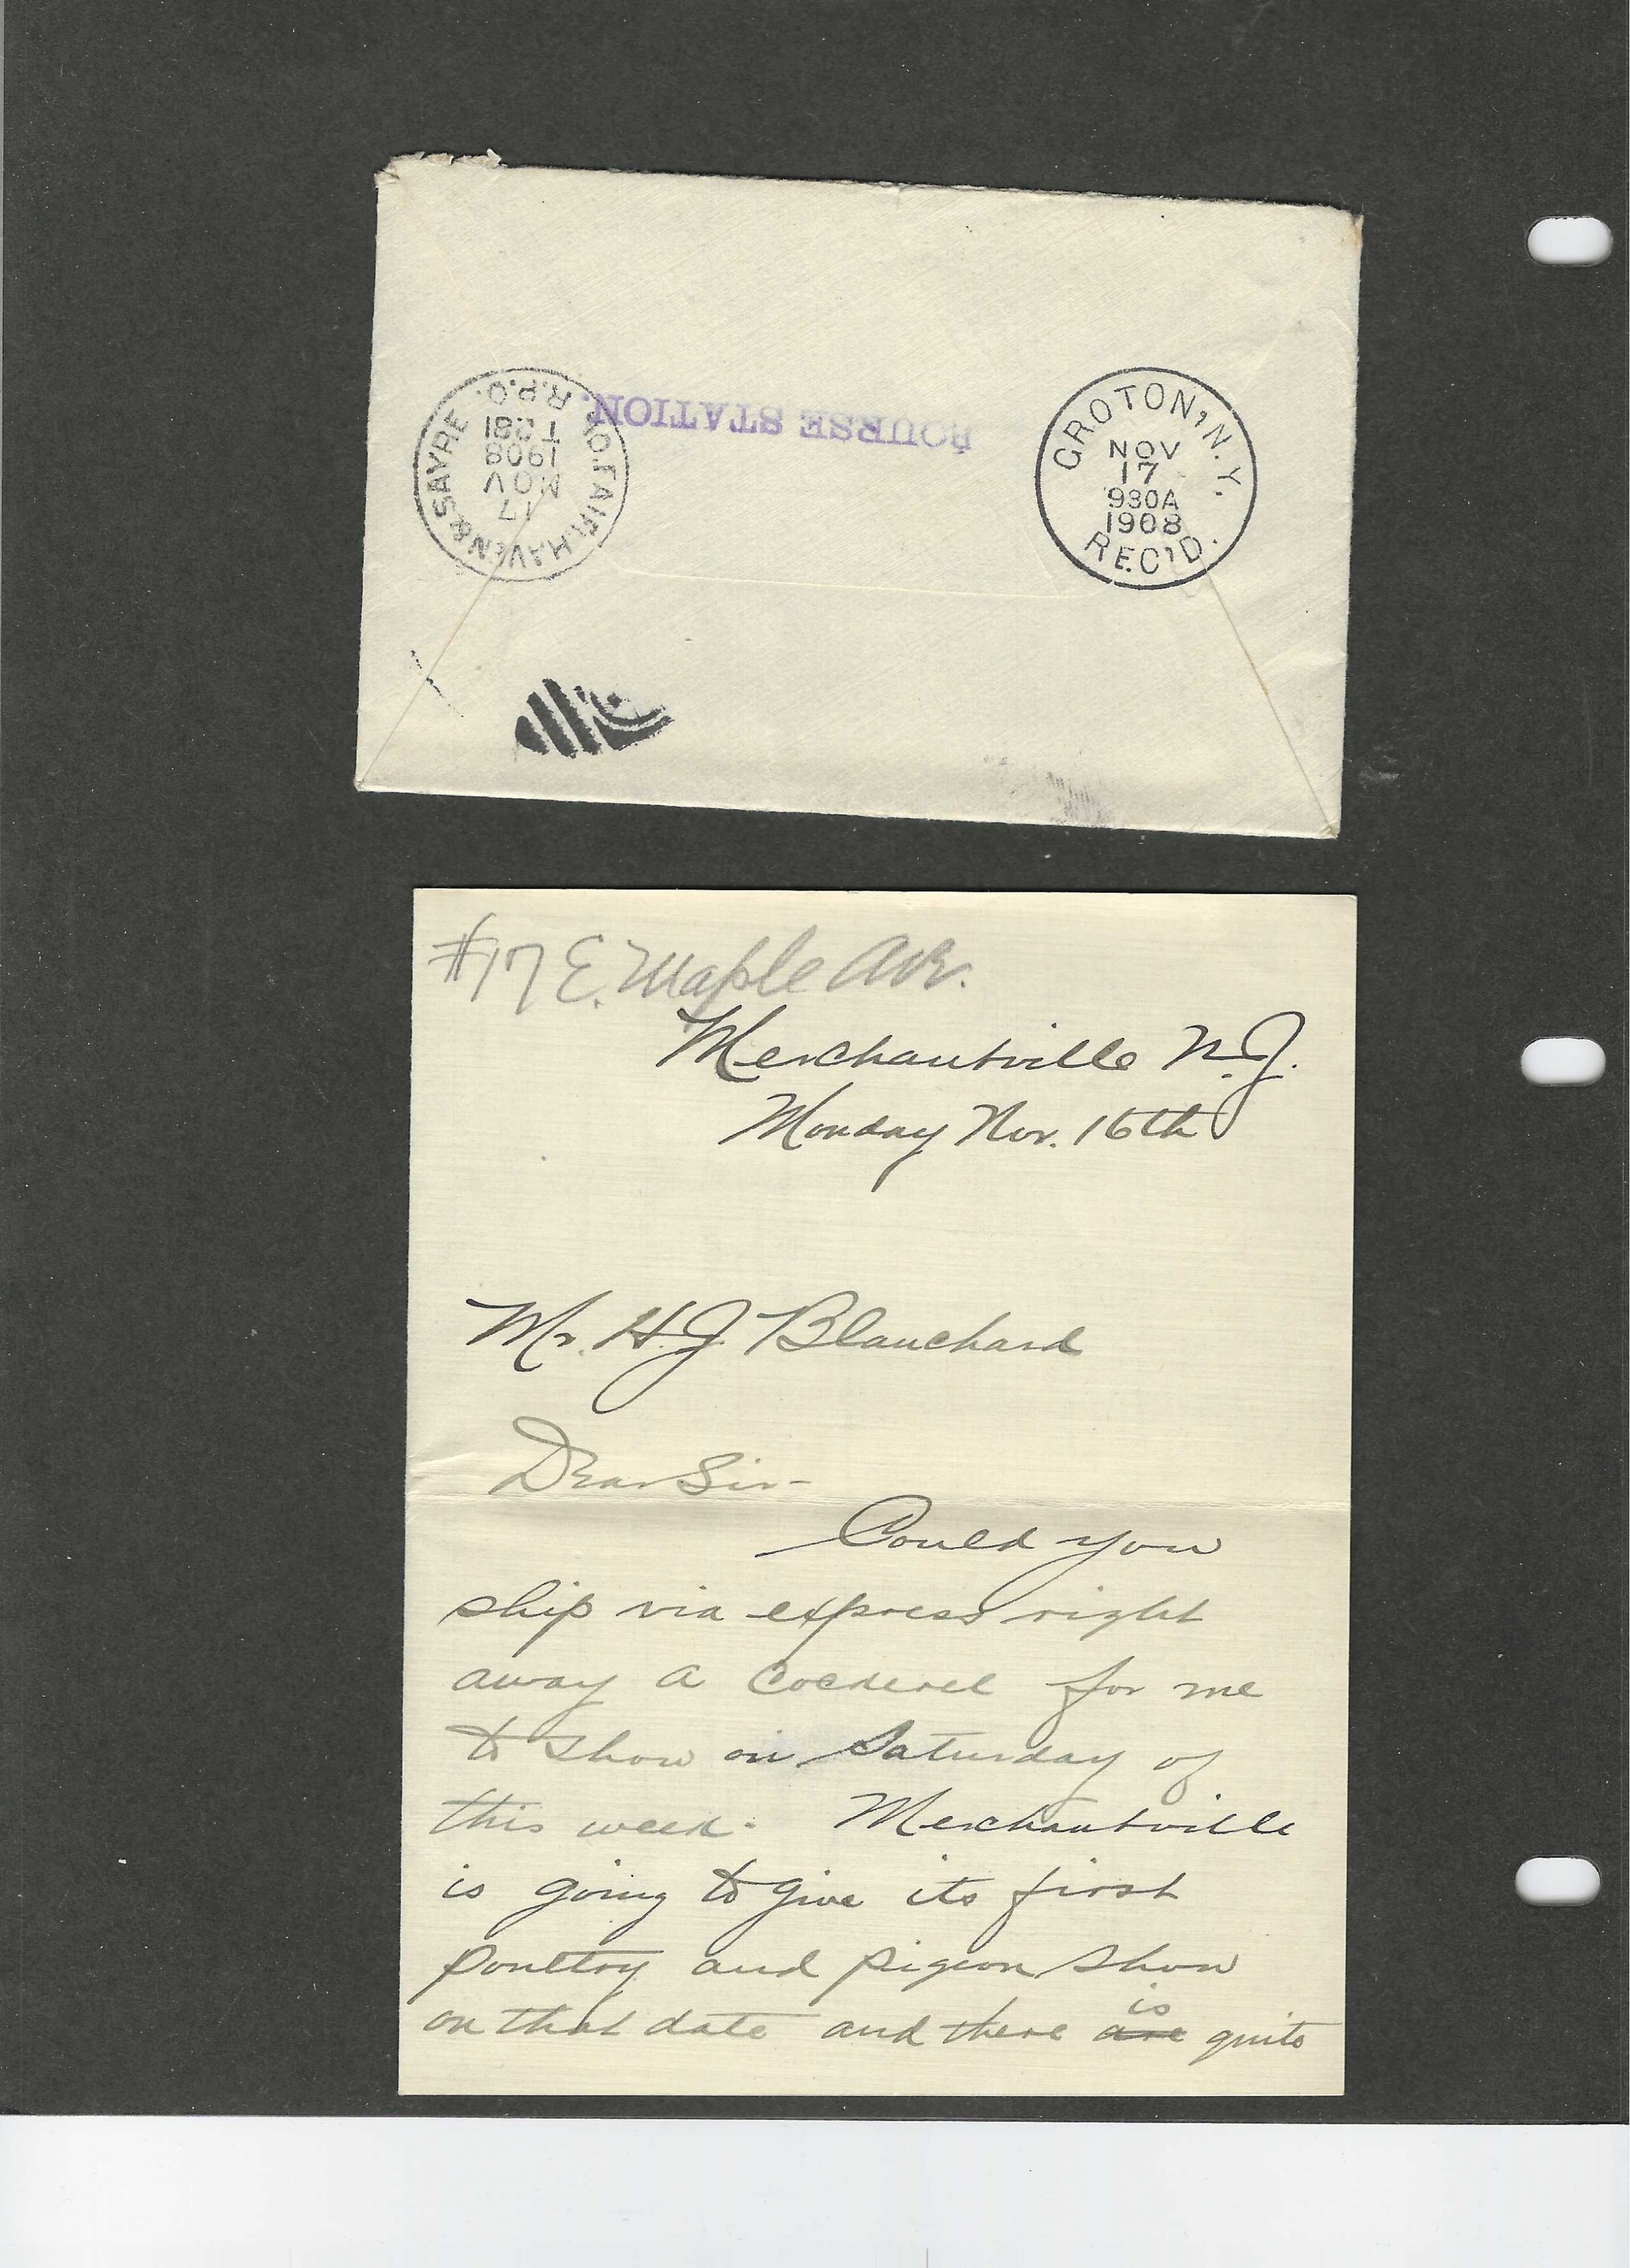 GROTON, N.Y.
NOV
17
930A
1908
REC'D.
BOURSE STATION.
FAIR HAVEN & SAYRE
R.P.O.
17
NOV
1908
#17 E. Maple Ave.
Merchantville N.J.
Monday Nov. 16th
Mr. H.J. Blanchard
Dear Sir-
Could you
ship via express right
away a cockerel for me
to show on Saturday of
this week. Merchantville
is going to give its first
poultry and pigeon show
on that date and there are is quite